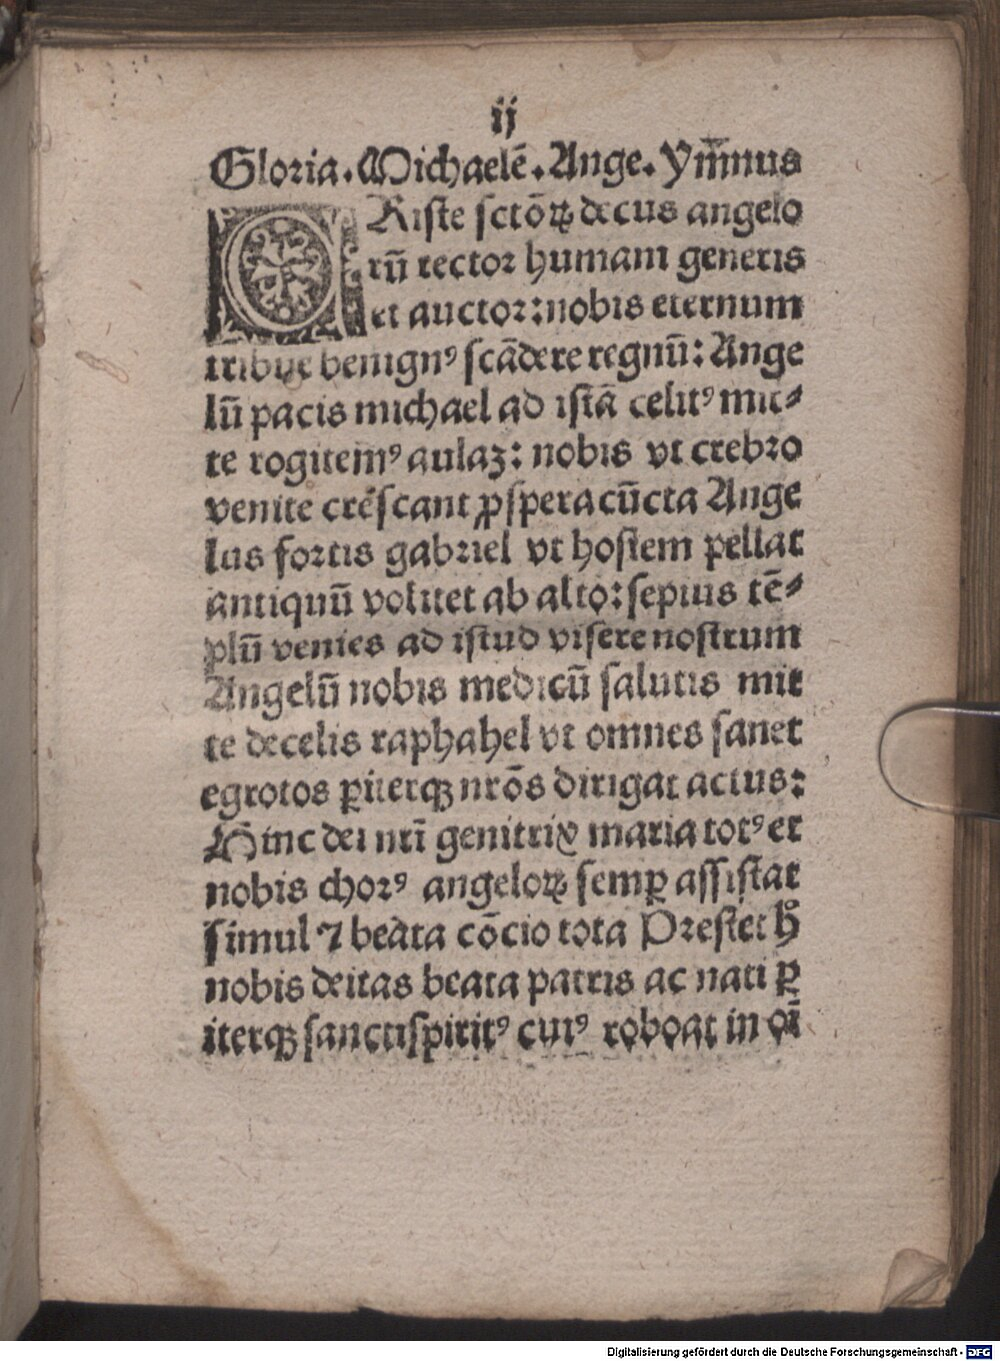 ij
Gloria. Michaelē. Ange. Ym̄nus
CRiste sctōꝝ decus angelo
rū rector humani generis
et auctor: nobis eternum
tribue benignꝰ scādere regnū: Ange
lū pacis michael ad istā celitꝰ mit⸗
te rogitemꝰ aulaꝫ: nobis vt crebro
venite crēscant ꝓspera cūcta Ange
lus fortis gabriel vt hostem pellat
antiquū volitet ab alto: sepius tē⸗
plū venies ad istud visere nostrum
Angelū nobis medicū salutis mit
te de celis raphahel vt omnes sanet
egrotos ꝑiterqꝫ nrōs dirigat actus:
Hinc dei nrī genitrix maria totꝰ et
nobis chorꝰ angeloꝝ semꝑ assistat
simul ⁊ beata cōcio tota Prestet h̊
nobis deitas beata patris ac nati ꝑ
iterqꝫ sanctispiritꝰ cuiꝰ roboat in oī
Digitalisierung gefördert durch die Deutsche Forschungsgemeinschaft - DFG